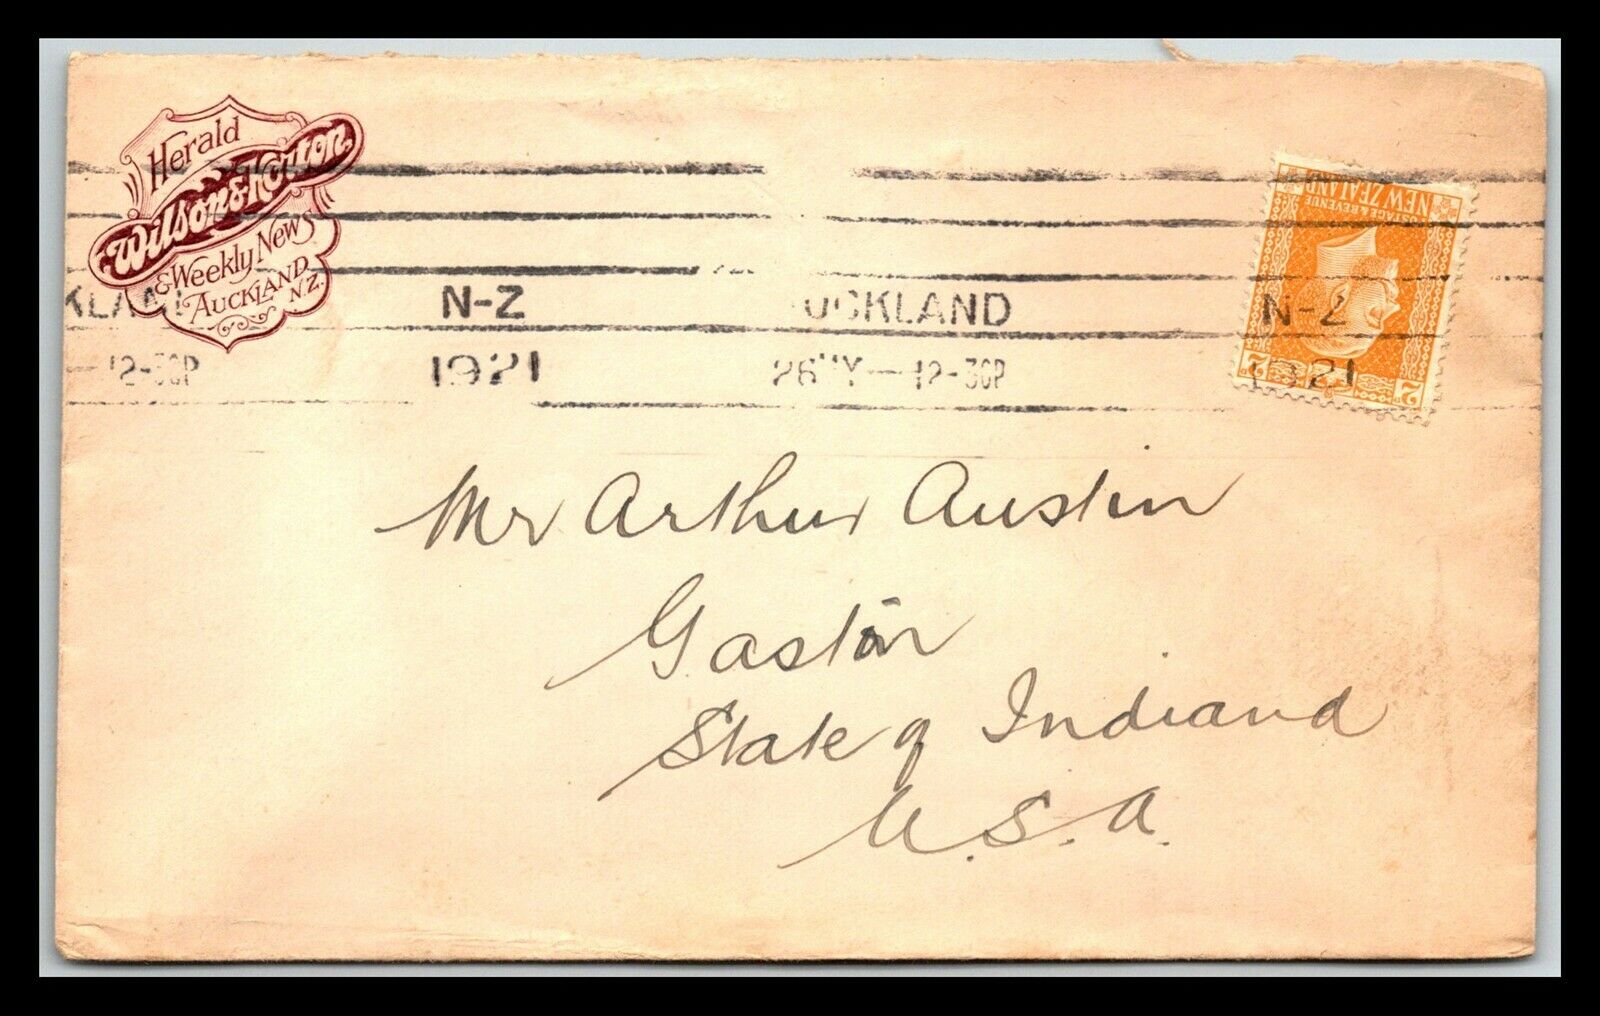 Herald
Wilson & Horton.
& Weekly News
AUCKLAND
N.Z.
N-Z AUCKLAND N-Z
12-30P 1921 26 MY 12-30P 1921
NEW ZEALAND
POSTAGE & REVENUE
2 2
Mr Arthur Austin
Gaston
State of Indiana
U.S.A.